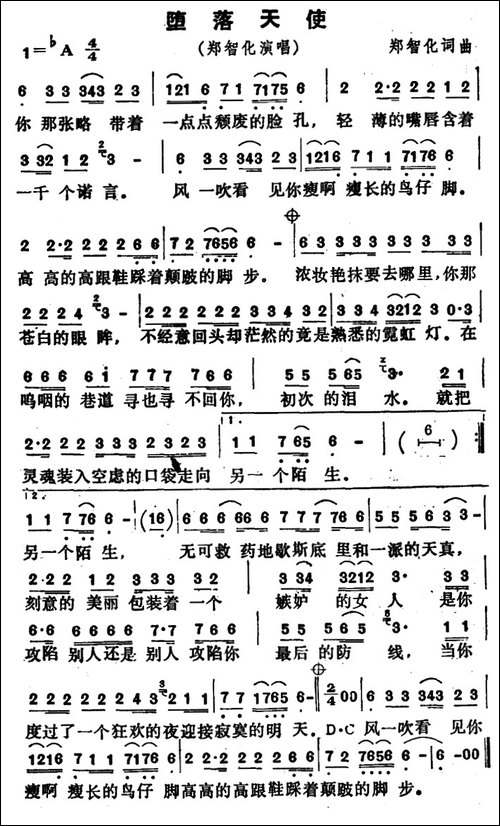 堕落天使
1=♭A 4/4 (郑智化演唱) 郑智化词曲
6 3 3 343 2 3 121 6 7 1 7175 6 2 2·2 2 2 1 2
你 那张略 带着 一点点颓废的脸 孔， 轻 薄的嘴唇含着
3 32 1 2 3- 6 3 3 343 2 3 1216 7 1 1 7176 6
一千 个诺 言。 风 一吹看 见你瘦啊 瘦长的鸟仔 脚。
2 2·2 2 2 2 6 6 7 2 7656 6 - 6 3 3 3 3 3 3 3 3 3 3
高 高的高跟鞋踩着颠跛的脚 步。 浓妆艳抹要去哪里，你那
2 2 2 4 3- 2 2 2 2 2 2 3 3 4 3 2 3 3 4 3212 3 0·3
苍白的眼 眸， 不经意回头却茫然的竟是熟悉的霓虹 灯。在
6 6 6 6 i 7 7 7 6 7 6 5 5 5 65 3· 2 1
呜咽的 巷道 寻也寻 不回你， 初次 的泪 水。 就把
2·2 2 2 3 3 2 3 2 3 1 1 7 65 6 - ( 6 - )
灵魂装入空虚的口袋走向 另一 个陌 生。
1 1 7 76 6 - (16) 6 6 6 66 6 6 7 7 7 76 6 5 5 5 6 3 3-
另一个陌 生， 无可救 药地歇斯底 里和一派的天真，
2·2 2 1 2 3 3 3 3 2 3 34 3212 3· 3 3
刻意的 美丽 包装着 一个 嫉妒 的女 人 是你
6·6 6 6 6 6 7·7 7 6 6 5 5 5 65 3· 1 1
攻陷 别人还是 别人 攻陷你 最后 的防 线， 当你
2 2 2 2 2 4 3 2 1 1 7 7 1 1765 6- 2/4 0 0 6 3 3 343 2 3
度过了一个狂欢的夜迎接寂寞的明 天。D·C 风一吹看 见你
1216 7 1 1 7176 6 2 2·2 2 2 2 6 6 7 2 7656 6 - 6 -00
瘦啊 瘦长的鸟仔 脚高高的高跟鞋踩着颠跛的脚 步。